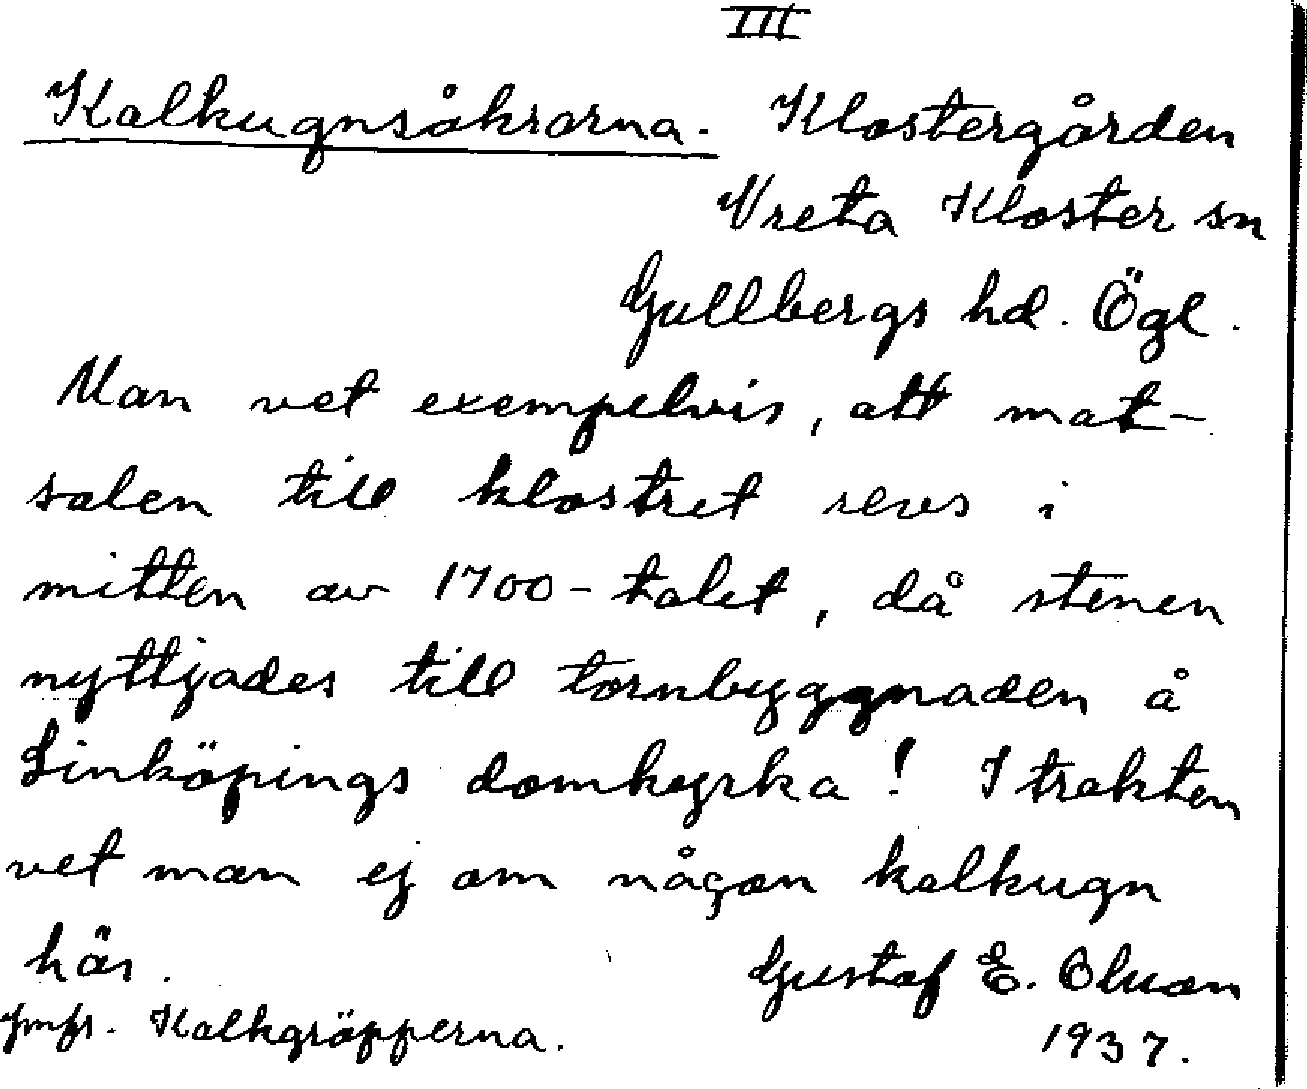 III
Kalkugnsåkrarna. Klostergården
Vreta Kloster sn
Gullbergs hd. Ögl.
Man vet exempelvis, att mat-
salen till klostret revs i
mitten av 1700-talet, då stenen
nyttjades till tornbyggnaden å
Linköpings domkyrka! I trakten
vet man ej om någon kalkugn
här.
Gustaf E. Olsson
Jmfr. Kalkgröpperna.
1937.